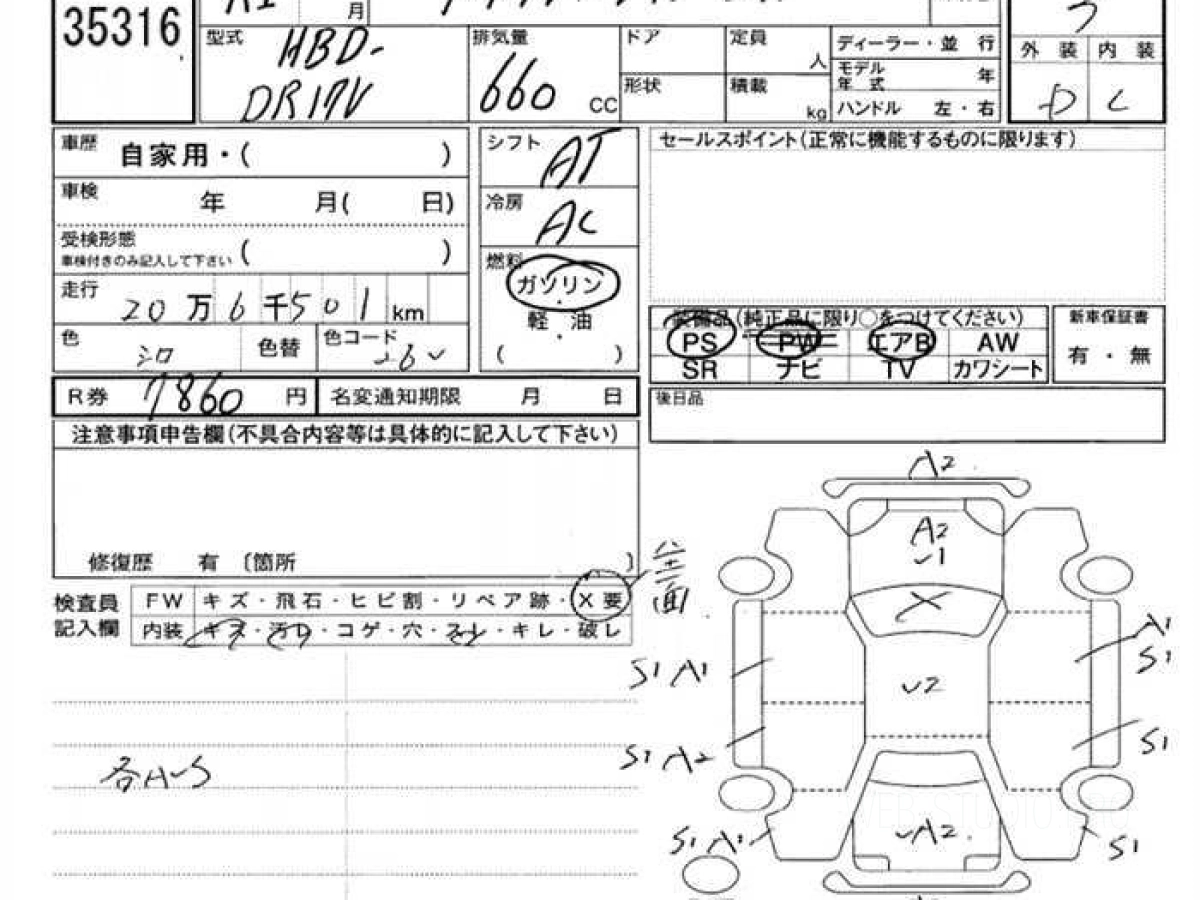 35316
月
型式 HBD-
DR17V
排気量
660 CC
ドア
形状
定員 人
積載 kg
ディーラー・並 行
モデル年式 年
ハンドル 左・右
外 装 内 装
D C
車歴 自家用・( )
車検 年 月( 日)
受検形態 ( )
車検付きのみ記入して下さい
走行 20 万 6 千 501 km
色 シロ 色替 色コード 26U
シフト AT
冷房 AC
燃料 ガソリン
・
軽 油
( )
セールスポイント(正常に機能するものに限ります)
装備品(純正品に限り○をつけてください)
PS PW エアB AW
SR ナビ TV カワシート
新車保証書
有・無
R券 7860 円 名変通知期限 月 日
後日品
注意事項申告欄(不具合内容等は具体的に記入して下さい)
修復歴 有 〔箇所 〕
全面
検査員
記入欄
FW キズ・飛石・ヒビ割・リペア跡・X要
内装 キズ・汚レ・コゲ・穴・スレ・キレ・破レ
各AUS
A2
A2
U1
X
U2
UA2
S1 A1
S1 A2
S1 A1
A1
S1
S1
S1